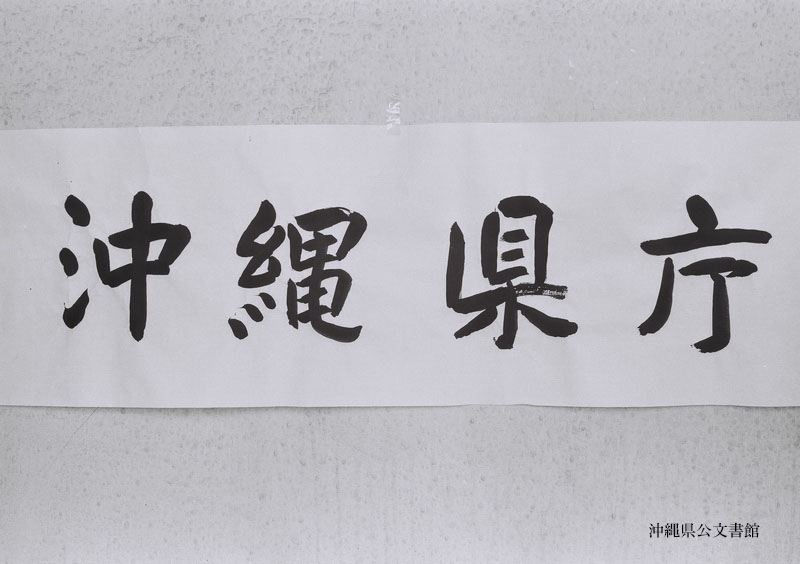 沖縄県庁
沖縄県公文書館